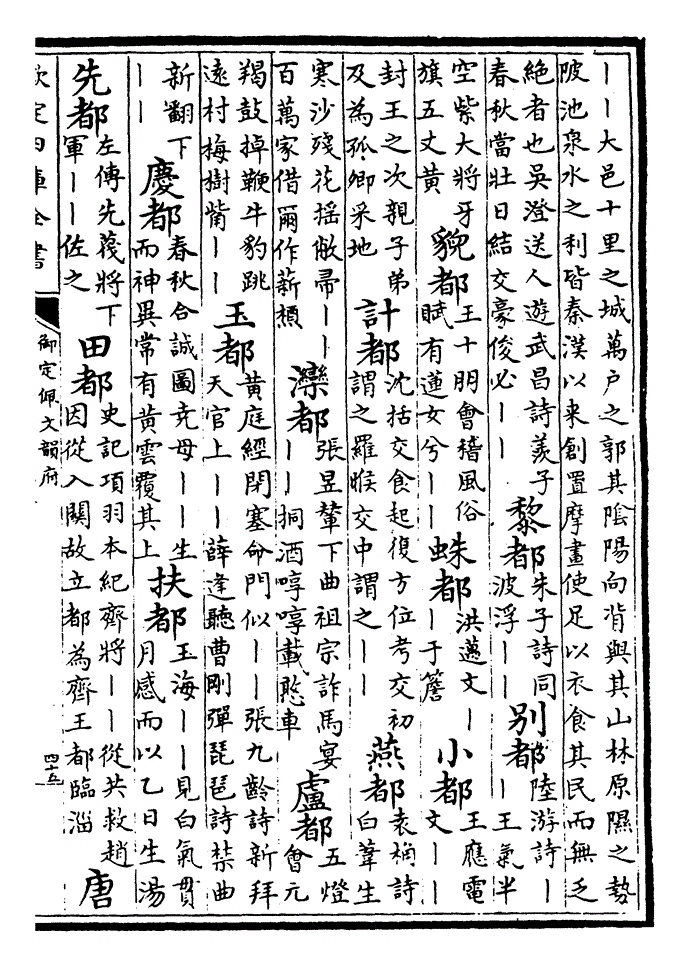 丨丨大邑十里之城萬户之郭其隂陽向背與其山林原隰之勢
陂池泉水之利皆秦漢以来創置摩畫使足以衣食其民而無乏
絶者也吴澄送人遊武昌詩羨子
春秋當壯日結交豪俊必丨丨
黎都
朱子詩同
波浮丨丨
別都
陸游詩丨
丨王氣半
空紫大將牙
旗五丈黄
貌都
王十朋會稽風俗
賦有蓮女兮丨丨
蛛都
洪邁文丨
丨于簷
小都
王應電
文丨丨
封王之次親子弟
及為孤卿采地
計都
沈括交食起復方位考交初
謂之羅睺交中謂之丨丨
燕都
袁桷詩
白葦生
寒沙殘花揺敝帚丨丨
百萬家借爾作薪槱
灤都
張昱輦下曲祖宗詐馬宴
丨丨挏酒啍啍載憨車
盧都
五燈
會元
羯鼓掉鞭牛豹跳
遠村梅樹觜丨丨
玉都
黄庭經閉塞命門似丨丨張九齡詩新拜
天官上丨丨薛逢聽曹剛彈琵琶詩禁曲
新翻下
丨丨
慶都
春秋合誠圖堯母丨丨生
而神異常有黄雲覆其上
扶都
玉海丨丨見白氣貫
月感而以乙日生湯
先都
左傳先蔑將下
軍丨丨佐之
田都
史記項羽本紀齊將丨丨從共救趙
因從入關故立都為齊王都臨淄
唐
欽定四庫全書
御定佩文韻府
四十五